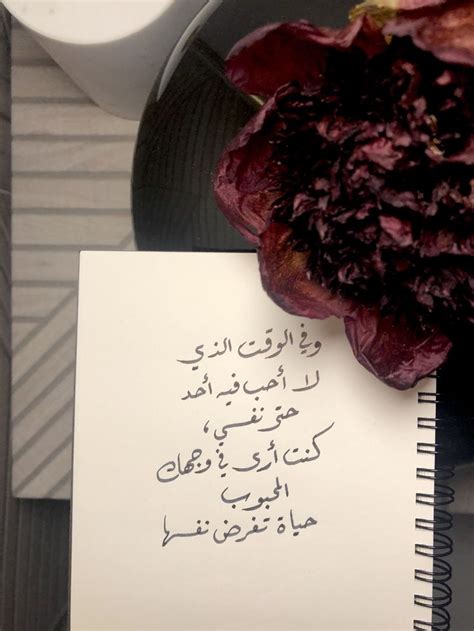 وفي الوقت الذي
لا أحب فيه أحد
حتى نفسي،
كنت أرى في وجهك
المحبوب
حياة تفرض نفسها